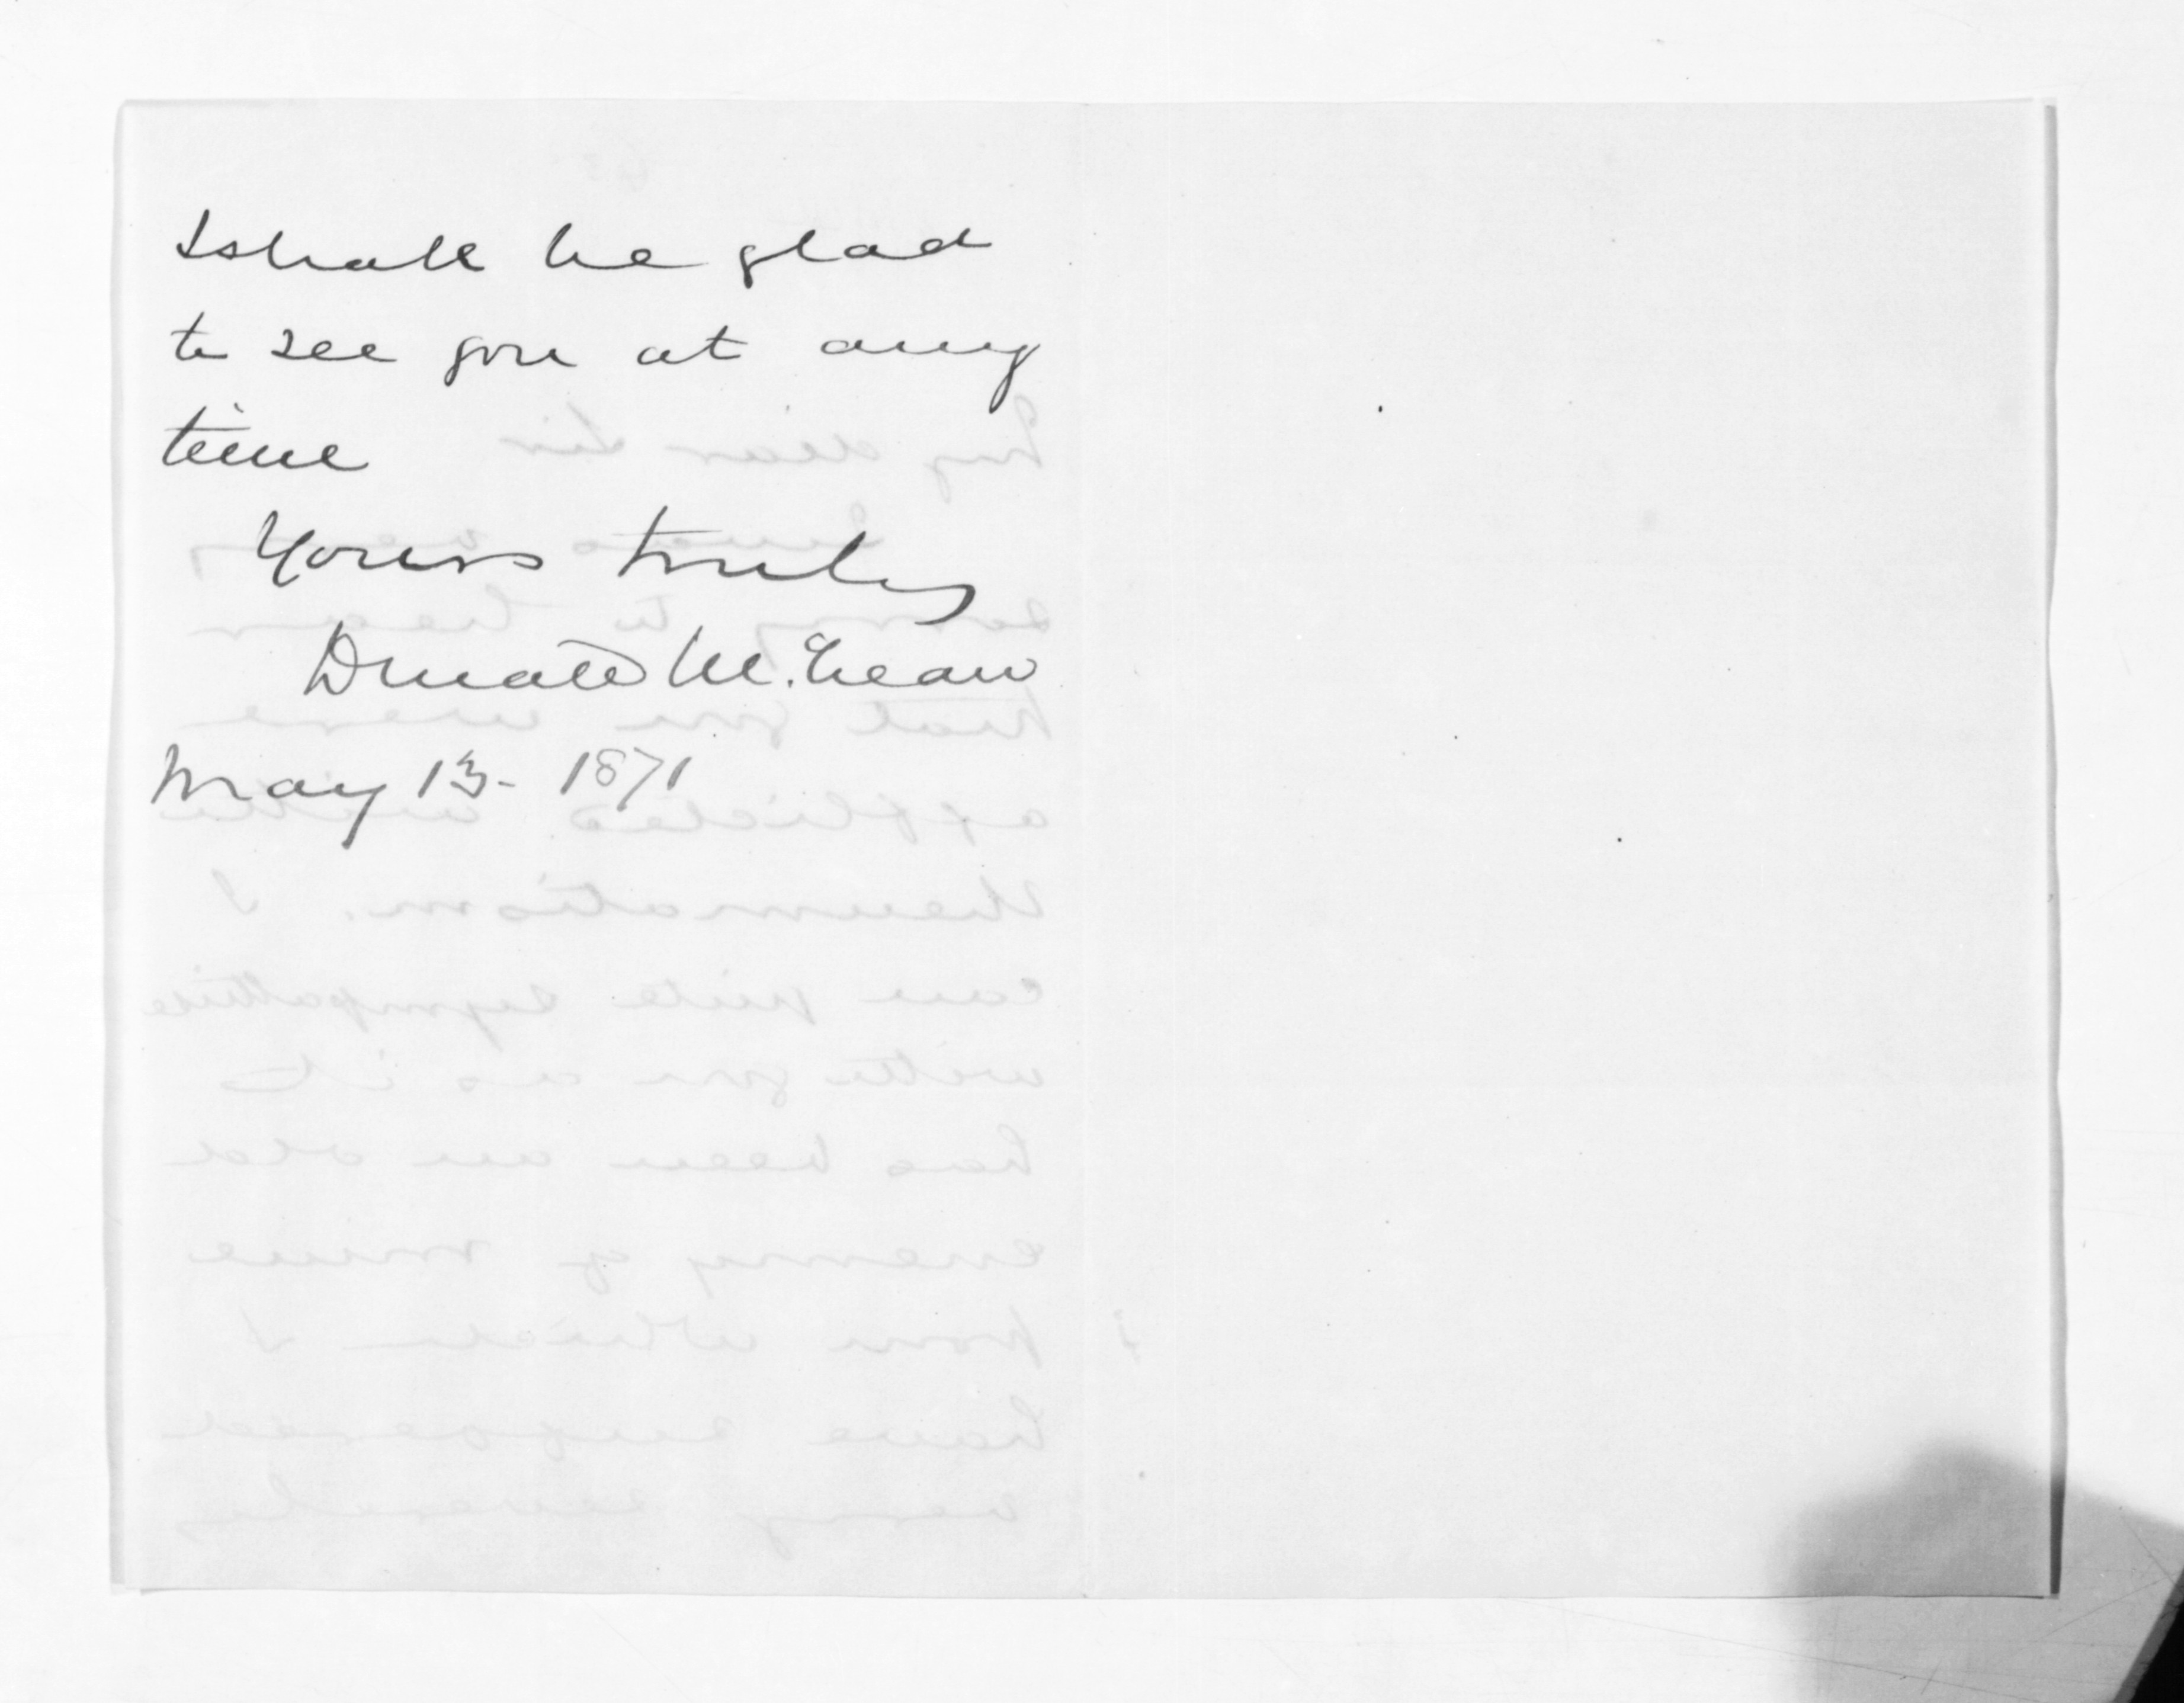 I shall be glad
to see you at any
time
Yours truly
Donald McLean
May 13 - 1871